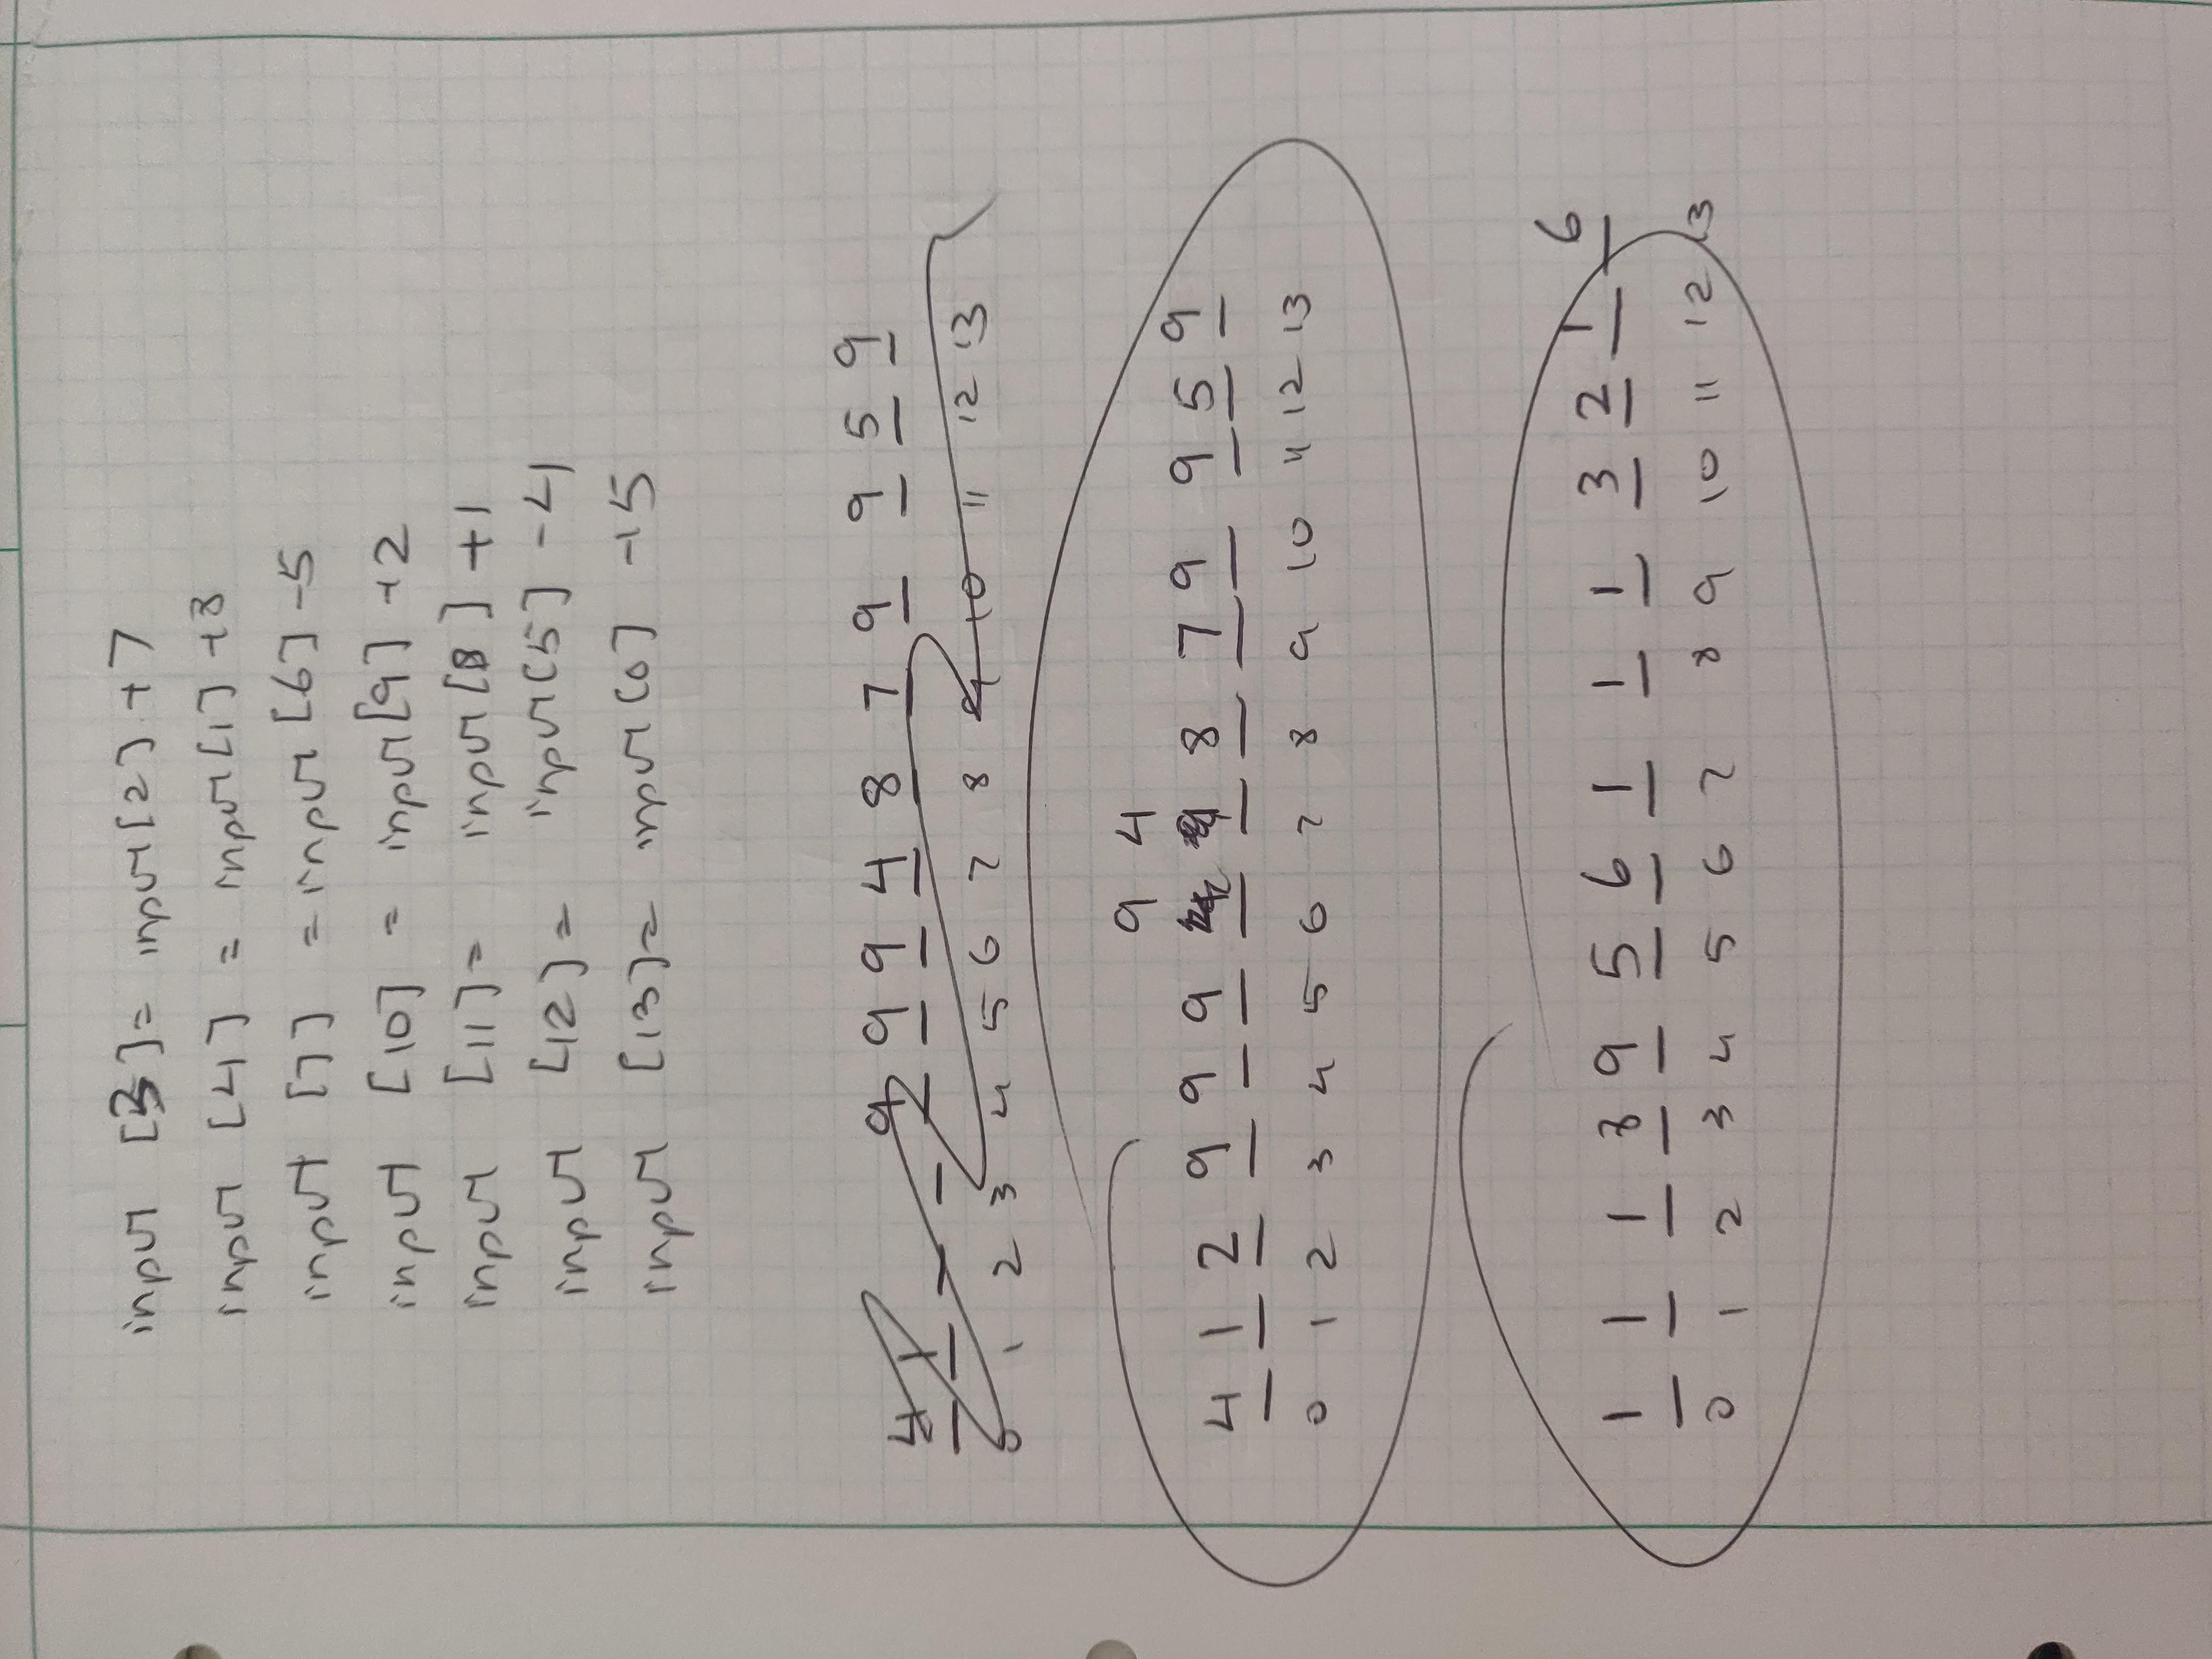 input [3] = input[2] +7
input [4] = input[1] +8
input [7] = input [6] -5
input [10] = input[9] +2
input [11] = input[8] +1
input [12] = input[5] -4
input [13] = input[0] +5
4 1 9 9 9 4 8 7 9 9 5 9
0 1 2 3 4 5 6 7 8 9 10 11 12 13
9 4
4 1 2 9 9 9 8 7 9 9 5 9
0 1 2 3 4 5 6 7 8 9 10 11 12 13
1 1 1 8 9 5 6 1 1 1 3 2 1 6
0 1 2 3 4 5 6 7 8 9 10 11 12 13